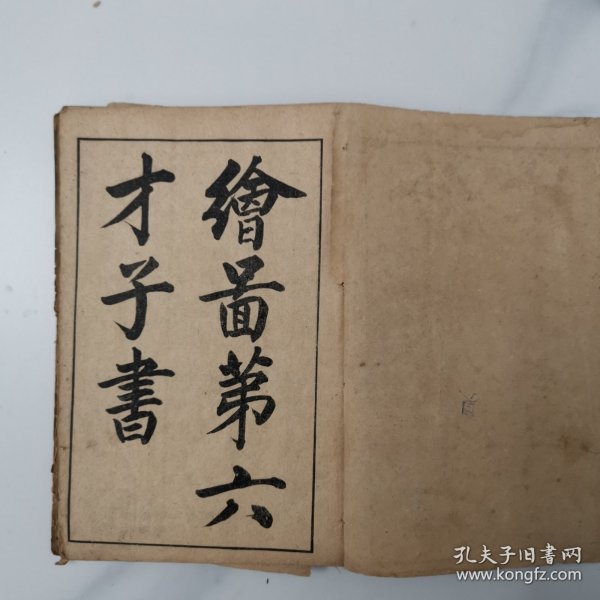 繪圖第六
才子書
孔夫子旧书网
www.kongfz.com